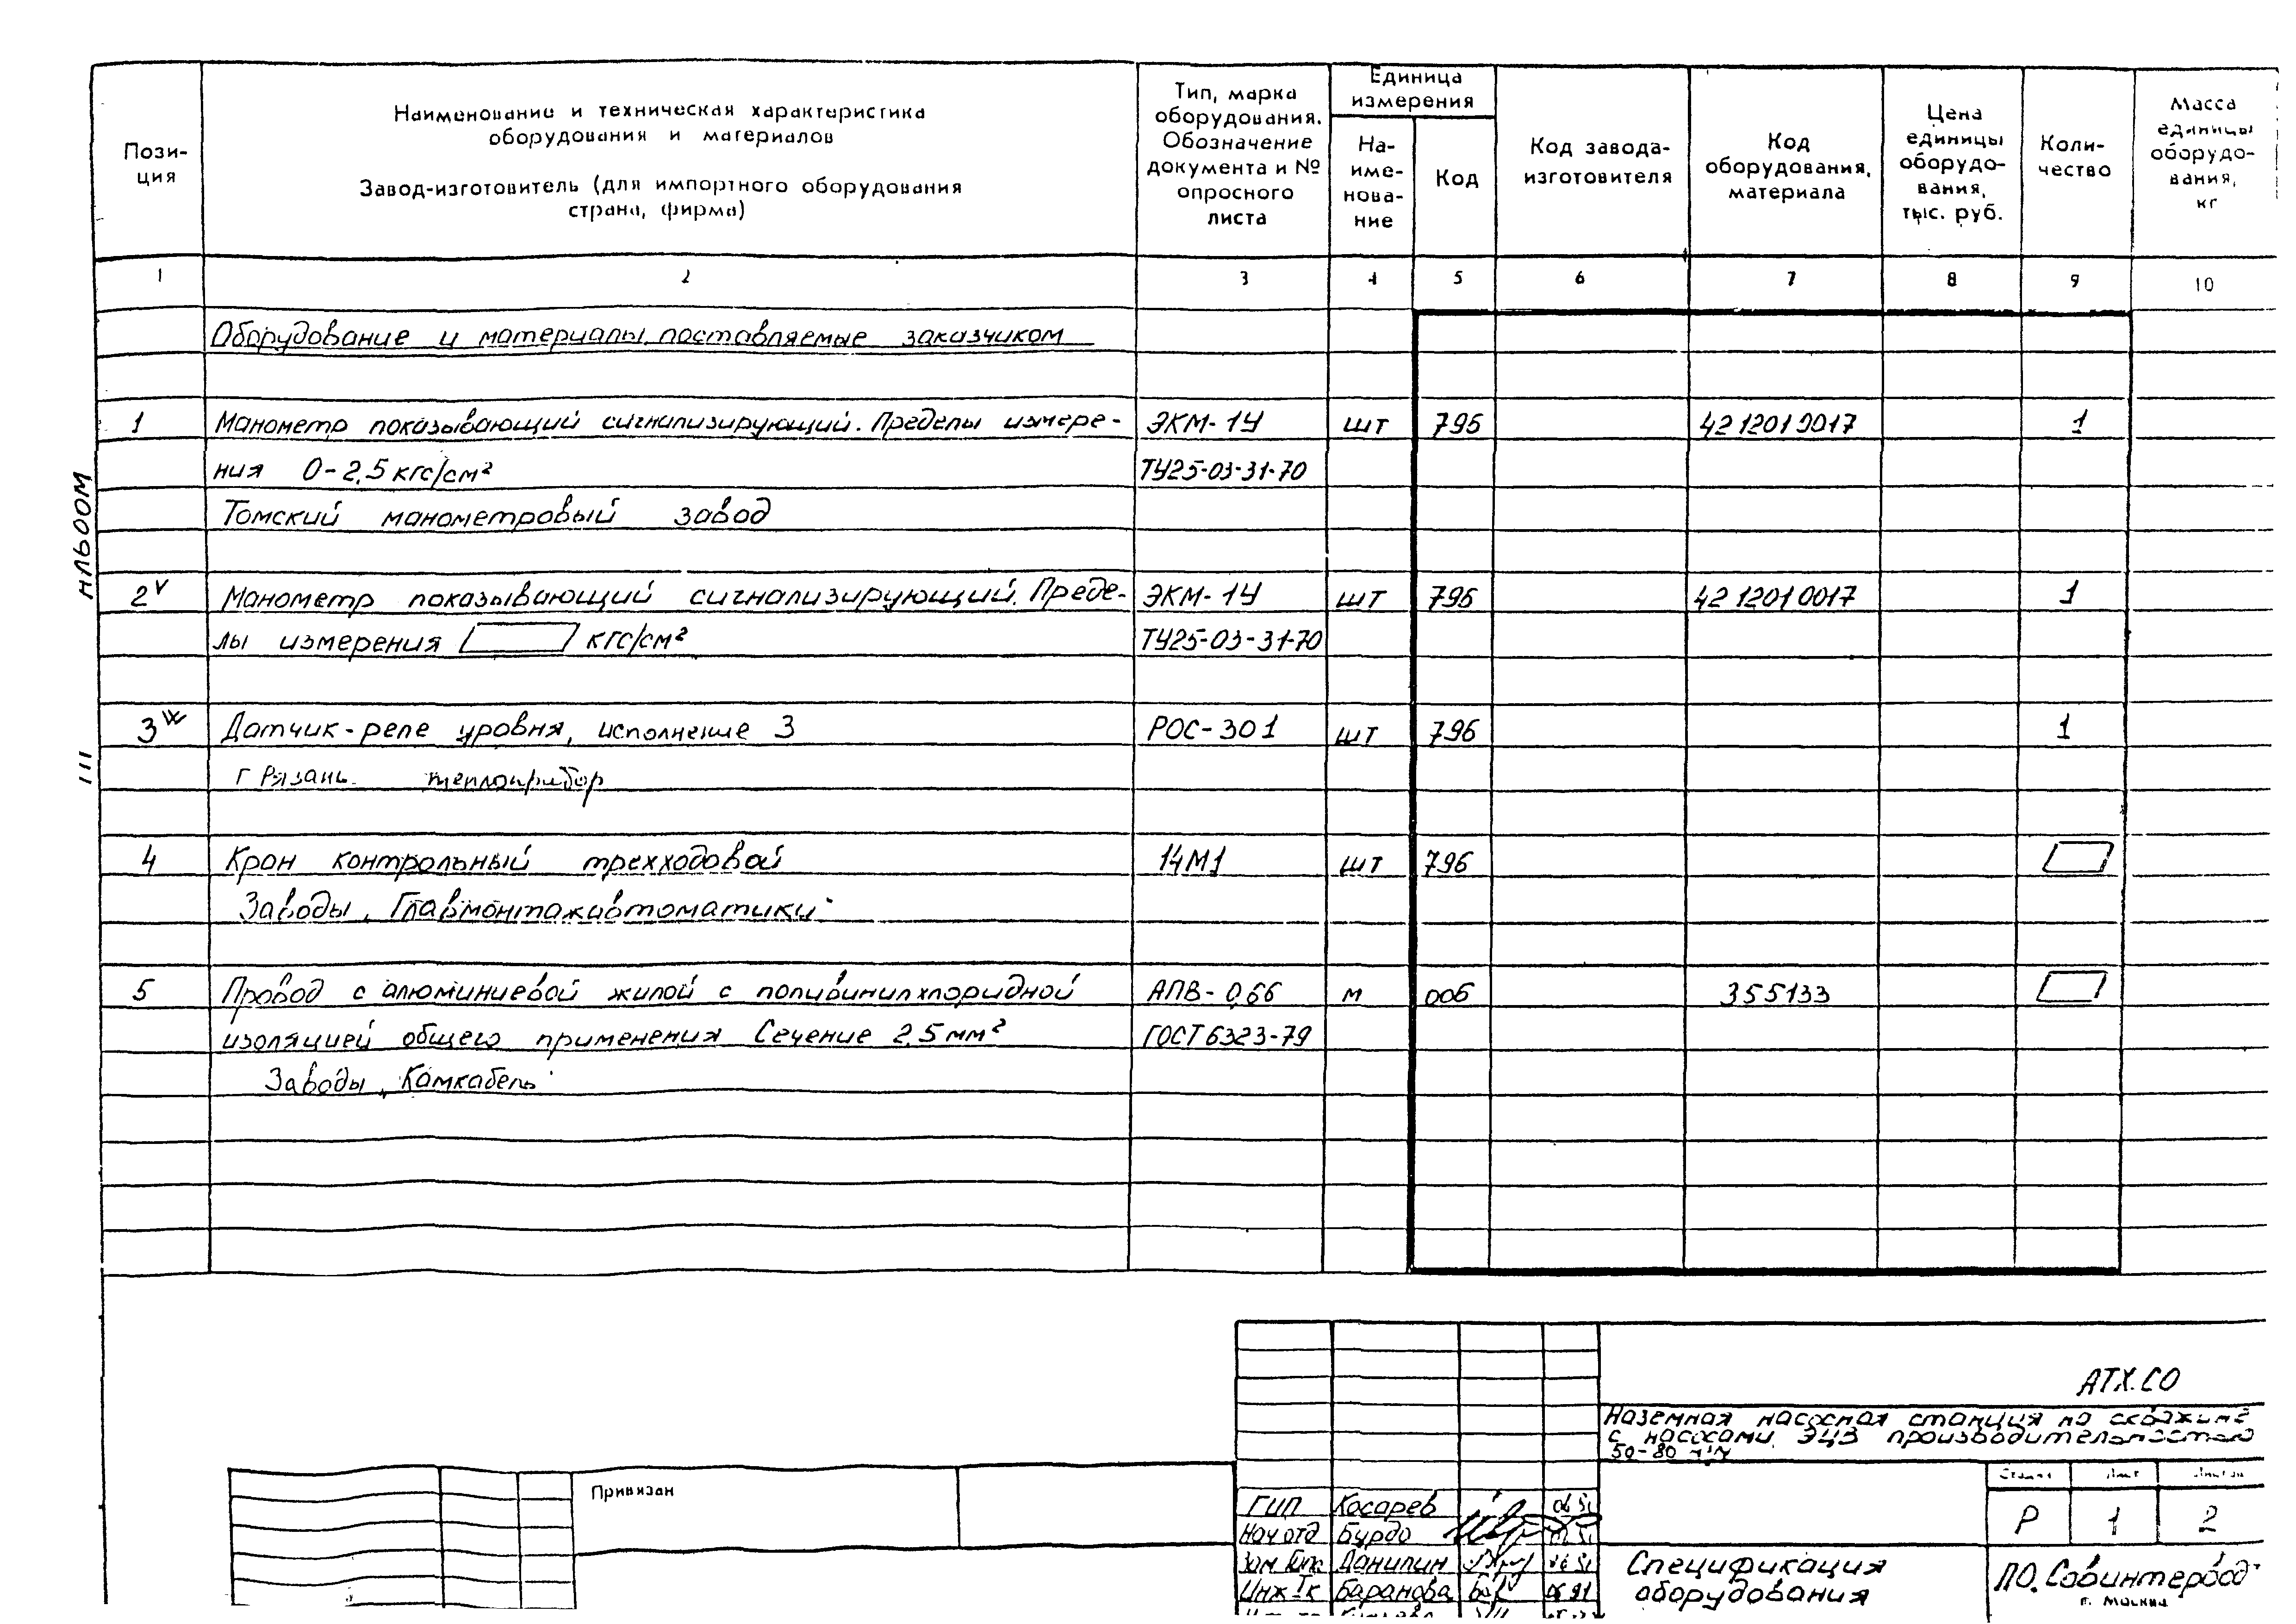 Пози-
ция
Наименование и техническая характеристика
оборудования и материалов
Завод-изготовитель (для импортного оборудования
страна, фирма)
Тип, марка
оборудования.
Обозначение
документа и №
опросного
листа
Единица
измерения
На-
име-
нова-
ние
Код
Код завода-
изготовителя
Код
оборудования,
материала
Цена
единицы
оборудо-
вания,
тыс. руб.
Коли-
чество
Масса
единицы
оборудо-
вания,
кг
1 2 3 4 5 6 7 8 9 10
Оборудование и материалы, поставляемые заказчиком
1 Манометр показывающий сигнализирующий. Пределы измере- ЭКМ-1У шт 796 4212010017 1
ния 0-2,5 кгс/см² ТУ25-03-31-70
Томский манометровый завод
2 Манометр показывающий сигнализирующий. Преде- ЭКМ-1У шт 796 4212010017 1
лы измерения кгс/см² ТУ25-03-31-70
3 Датчик-реле уровня, исполнение 3 РОС-301 шт 796 1
г Рязань теплоприбор
4 Кран контрольный трехходовой 14М1 шт 796
Заводы „Главмонтажавтоматики"
5 Провод с алюминиевой жилой с поливинилхлоридной АПВ-0,66 м 006 355133
изоляцией общего применения Сечение 2,5 мм² ГОСТ 6323-79
Заводы „Камкабель"
АТХ.СО
Наземная насосная станция на скважине
с насосами ЭЦВ производительностью
50-80
Привязан
Стадия Лист Листов
Р 1 2
ГИП Косарев
Нач отд Бурдо
Зам Данилин
Инж Iк Баранова 06 91
Спецификация
оборудования
ПО „Совинтервод"
г. Москва